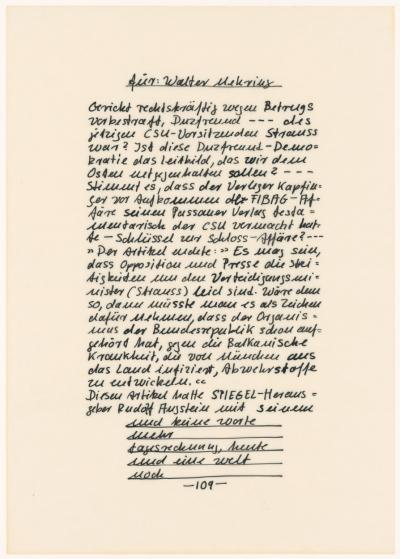 für: Walter Mehring
Gericht rechtskräftig wegen Betrugs
vorbestraft, Duzfreund --- des
jetzigen CSU-Vorsitzenden Strauss
war? Ist diese Duzfreund-Demo=
kratie das Leitbild, das wir dem
Osten entgegenhalten sollen? ---
Stimmt es, dass der Verleger Kapfin=
ger vor Aufkommen der FIBAG-Af=
färe seinen Passauer Verlag testa=
mentarisch der CSU vermacht hat=
te - Schlüssel zur Schloss-Affäre? ---
» Der Artikel endete: » Es mag sein,
dass Opposition und Presse die Stei=
tigkeiten um den Verteidigungsmi=
nister (Strauss) leid sind. Wäre dem
so, dann müsste man es als Zeichen
dafür nehmen, dass der Organis=
mus der Bundesrepublik schon auf=
gehört hat, gegen die Balkanische
Krankheit, die von München aus
das Land infiziert, Abwehrstoffe
zu entwickeln. «
Diesen Artikel hatte SPIEGEL-Heraus=
geber Rudolf Augstein mit seinem
und keine worte
mehr
tagesrechnung, heute
und eine welt
noch
-109-